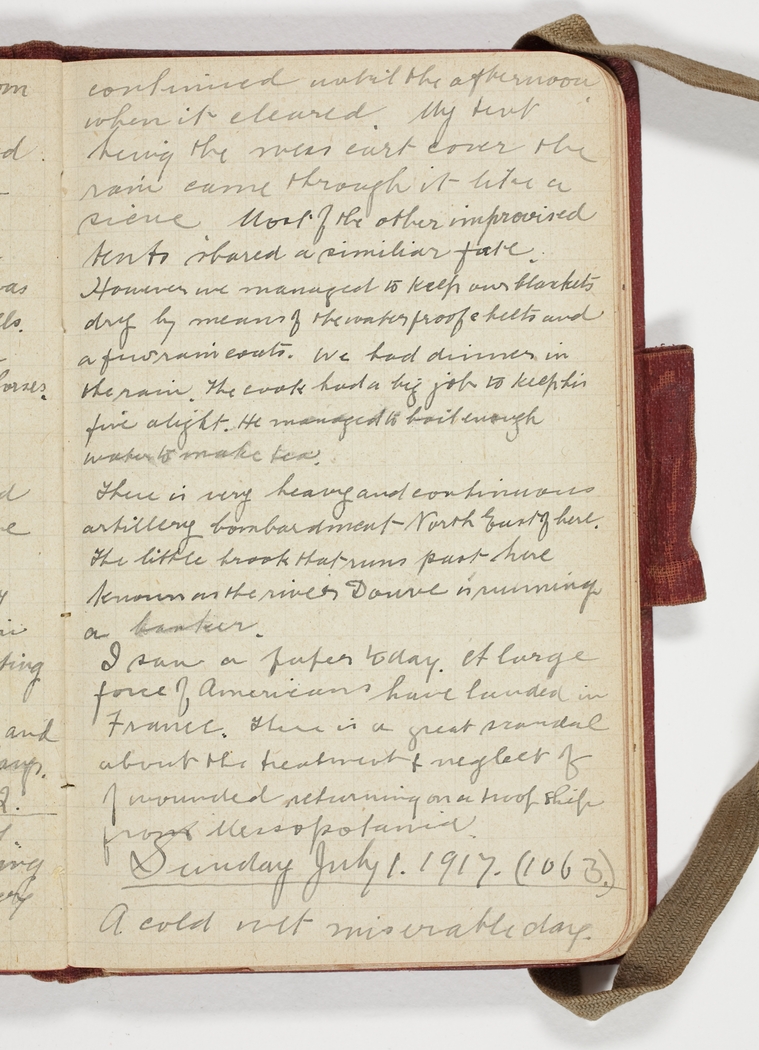 continued until the afternoon
when it cleared My tent
being the mess cart cover the
rain came through it like a
sieve Most of the other improvised
tents shared a similiar fate.
However we managed to keep our blankets
dry by means of the waterproof sheets and
a few rain coats. We had dinner in
the rain. The cook had a big job to keep his
fire alight. He managed to boil enough
water to make tea.
There is very heavy and continuous
artillery bombardment North East of here.
The little brook that runs past here
known as the river Douve is running
a banker.
I saw a paper today. A large
force of Americans have landed in
France. There is a great scandal
about the treatment & neglect of
of wounded returning on a troop ship
from Messopotamia.
Sunday July 1. 1917. (1063.)
A cold wet miserable day.
om
d.
was
lls.
horses.
d
e
y
ting
and
2.
ing